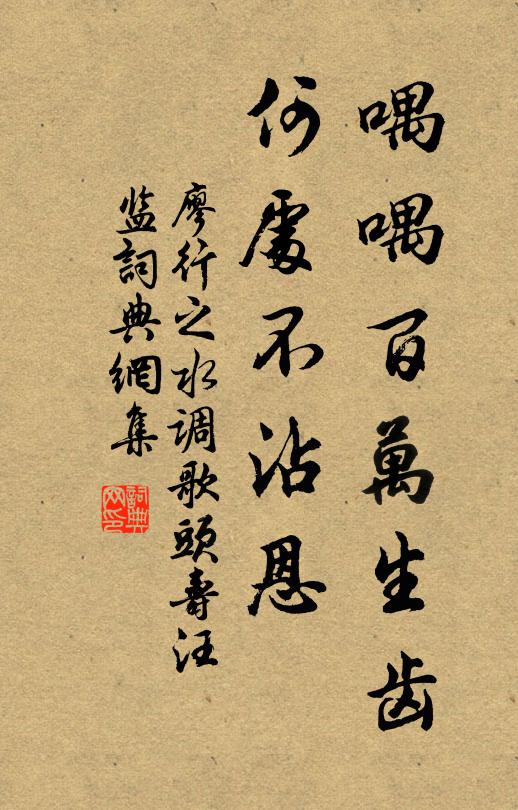 喁喁百萬生齿
何處不沾恩
廖行之水调歌頭壽汪
监詞典網集
詞典
网印